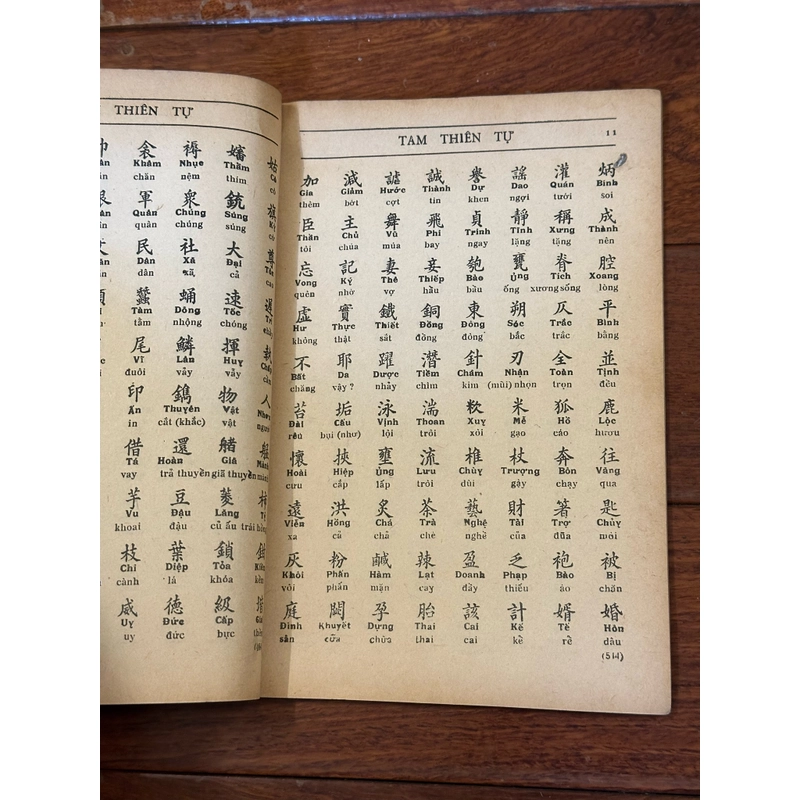 THIÊN TỰ
衾 褥 嬸 姑
Khâm Nhục Thầm
chăn nệm thím
軍 衆 銃 旗
Quân Chủng Súng
quân chúng súng
民 社 大 尊
Dân Xã Đại
dân xã cả
蠶 蛹 速 遲
Tàm Dông Tốc
tằm nhộng chóng
尾 鱗 揮 執
Vĩ Lân Huy
đuôi vảy vẫy
印 鐫 物 人
Ấn Thuyên Vật
in cắt (khắc) vật
借 還
Tá Hoàn Giả
vay trả thuyền giã thuyền
芋 豆 菱
Vu Đậu Lăng
khoai đậu củ ấu
枝 葉 鎖
Chi Diệp Tỏa
cành lá khóa
威 德 級
Uy Đức Cấp
uy đức bực
TAM THIÊN TỰ 11
加 減 謔 誠 譽 謠 灌 炳
Gia Giảm Hước Thành Dự Dao Quán Bính
thêm bớt cợt tín khen ngợi tưới soi
臣 主 舞 飛 貞 靜 稱 成
Thần Chủ Vũ Phi Trinh Tĩnh Xưng Thành
tôi chúa múa bay ngay lặng tặng nên
忘 記 妻 妾 匏 甕 脊 腔
Vong Ký Thê Thiếp Bào Ủng Tích Xoang
quên nhớ vợ hầu bầu ống xương sống lòng
虛 實 鐵 銅 東 朔 仄 平
Hư Thực Thiết Đồng Đông Sóc Trắc Bình
không thật sắt đồng đông bắc trắc bằng
不 耶 躍 潛 針 刃 全 並
Bất Da Dược Tiềm Châm Nhận Toàn Tịnh
chăng vậy ? nhảy chìm kim (mũi) nhọn trọn đều
苔 垢 泳 湍 米 狐 鹿
Đài Cấu Vịnh Thoan Xuy Mễ Hồ Lộc
rêu bụi (nhơ) lội trôi xôi gạo cáo hươu
懷 挾 壅 流 椎 杖 奔 往
Hoài Hiệp Ủng Lưu Chùy Trượng Bôn Vãng
cưu cắp lấp trôi dùi gậy chạy qua
遠 洪 炙 茶 藝 財 箸 匙
Viễn Hồng Chá Trà Nghệ Tài Trợ Chủy
xa cả chả chè nghề của đũa môi
灰 粉 鹹 辣 盈 乏 袍 被
Khôi Phấn Hàm Lạt Doanh Phạp Bào Bị
vôi phấn mặn cay đầy thiếu áo chăn
庭 闕 孕 胎 該 計 婿 婚
Đình Khuyết Dựng Thai Cai Kế Tế Hôn
sân cửa chửa thai cai kể rể dâu
(514)